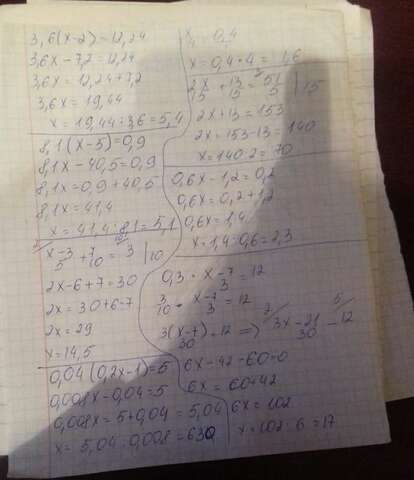 3,6(x-2)=12,24
3,6x-7,2=12,24
3,6x=12,24+7,2
3,6x=19,44
x=19,44:3,6=5,4
8,1(x-5)=0,9
8,1x-40,5=0,9
8,1x=0,9+40,5
8,1x=41,4
x=41,4:8,1=5,1
x-3/5 + 7/10 = 3 |10
2x-6+7=30
2x=30+6-7
2x=29
x=14,5
0,04(0,2x-1)=5
0,008x-0,04=5
0,008x=5+0,04=5,04
x=5,04:0,008=630
= 0,4
x=0,4·4=1,6
2x/15 + 13/15 = 51/5 |15
2x+13=153
2x=153-13=140
x=140:2=70
0,6x-1,2=0,2
0,6x=0,2+1,2
0,6x=1,4
x=1,4:0,6=2,3
0,3 · x-7/3 = 12
3/10 · x-7/3 = 12
3(x-7)/30 = 12 => 3x-21/30 = 12
6x-42-60=0
6x=60+42
6x=102
x=102:6=17